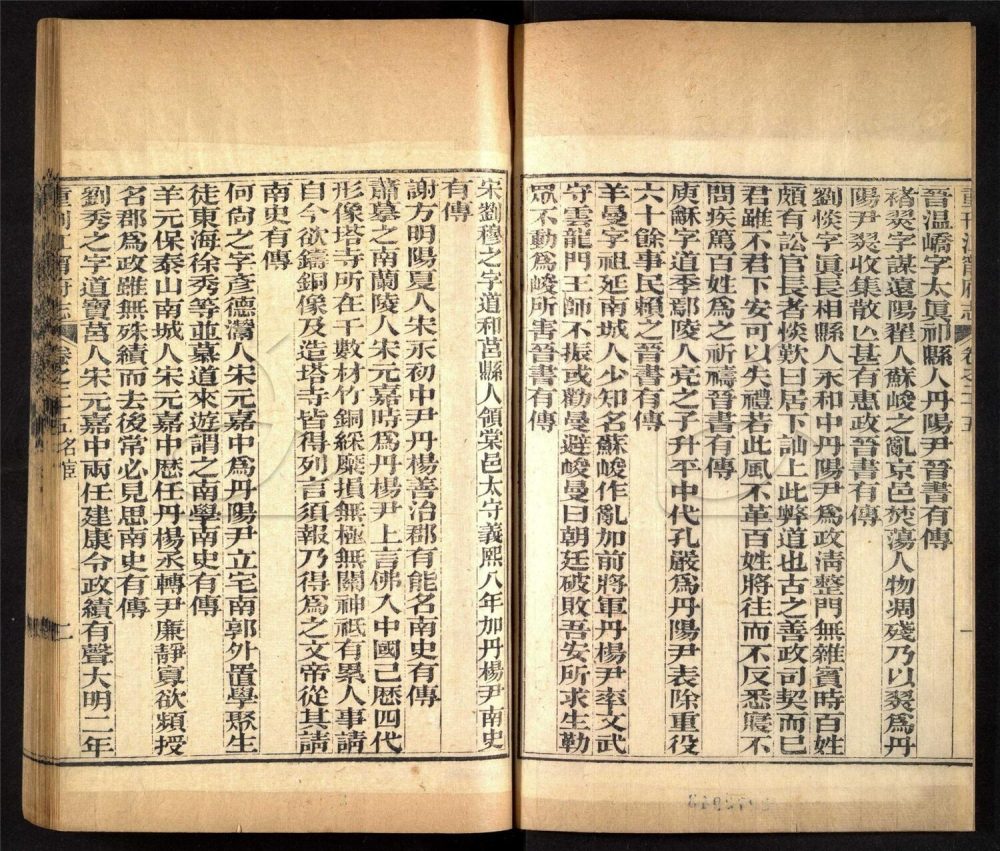 重刊江寧府志 卷之二十五
晉溫嶠字太眞祁縣人丹陽尹晉書有傳
褚翜字謀遠陽翟人蘇峻之亂京邑焚蕩人物凋殘乃以翜爲丹
陽尹翜收集散亾甚有惠政晉書有傳
劉惔字眞長相縣人永和中丹陽尹爲政淸整門無雜賓時百姓
頗有訟官長者惔歎曰居下訕上此弊道也古之善政司契而已
君雖不君下安可以失禮若此風不革百姓將往而不反悉寢不
問疾篤百姓爲之祈禱晉書有傳
庾龢字道季鄢陵人亮之子升平中代孔嚴爲丹陽尹表除重役
六十餘事民賴之晉書有傳
羊曼字祖延南城人少知名蘇峻作亂加前將軍丹楊尹率文武
守雲龍門王師不振或勸曼避峻曼曰朝廷破敗吾安所求生勒
眾不動爲峻所害晉書有傳
宋劉穆之字道和莒縣人領棠邑太守義熙八年加丹楊尹南史
有傳
謝方明陽夏人宋永初中尹丹楊善治郡有能名南史有傳
蕭摹之南蘭陵人宋元嘉時爲丹楊尹上言佛入中國已歷四代
形像塔寺所在千數材竹銅綵糜損無極無關神祇有累人事請
自今欲鑄銅像及造塔寺皆得列言須報乃得爲之文帝從其請
南史有傳
何尙之字彥德灊人宋元嘉中爲丹陽尹立宅南郭外置學聚生
徒東海徐秀等並慕道來遊謂之南學南史有傳
羊元保泰山南城人宋元嘉中歷任丹楊丞轉尹廉靜寡欲頻授
名郡爲政雖無殊績而去後常必見思南史有傳
劉秀之字道寶莒人宋元嘉中兩任建康令政績有聲大明二年
重刊江寧府志 卷之二十五 名宦 二